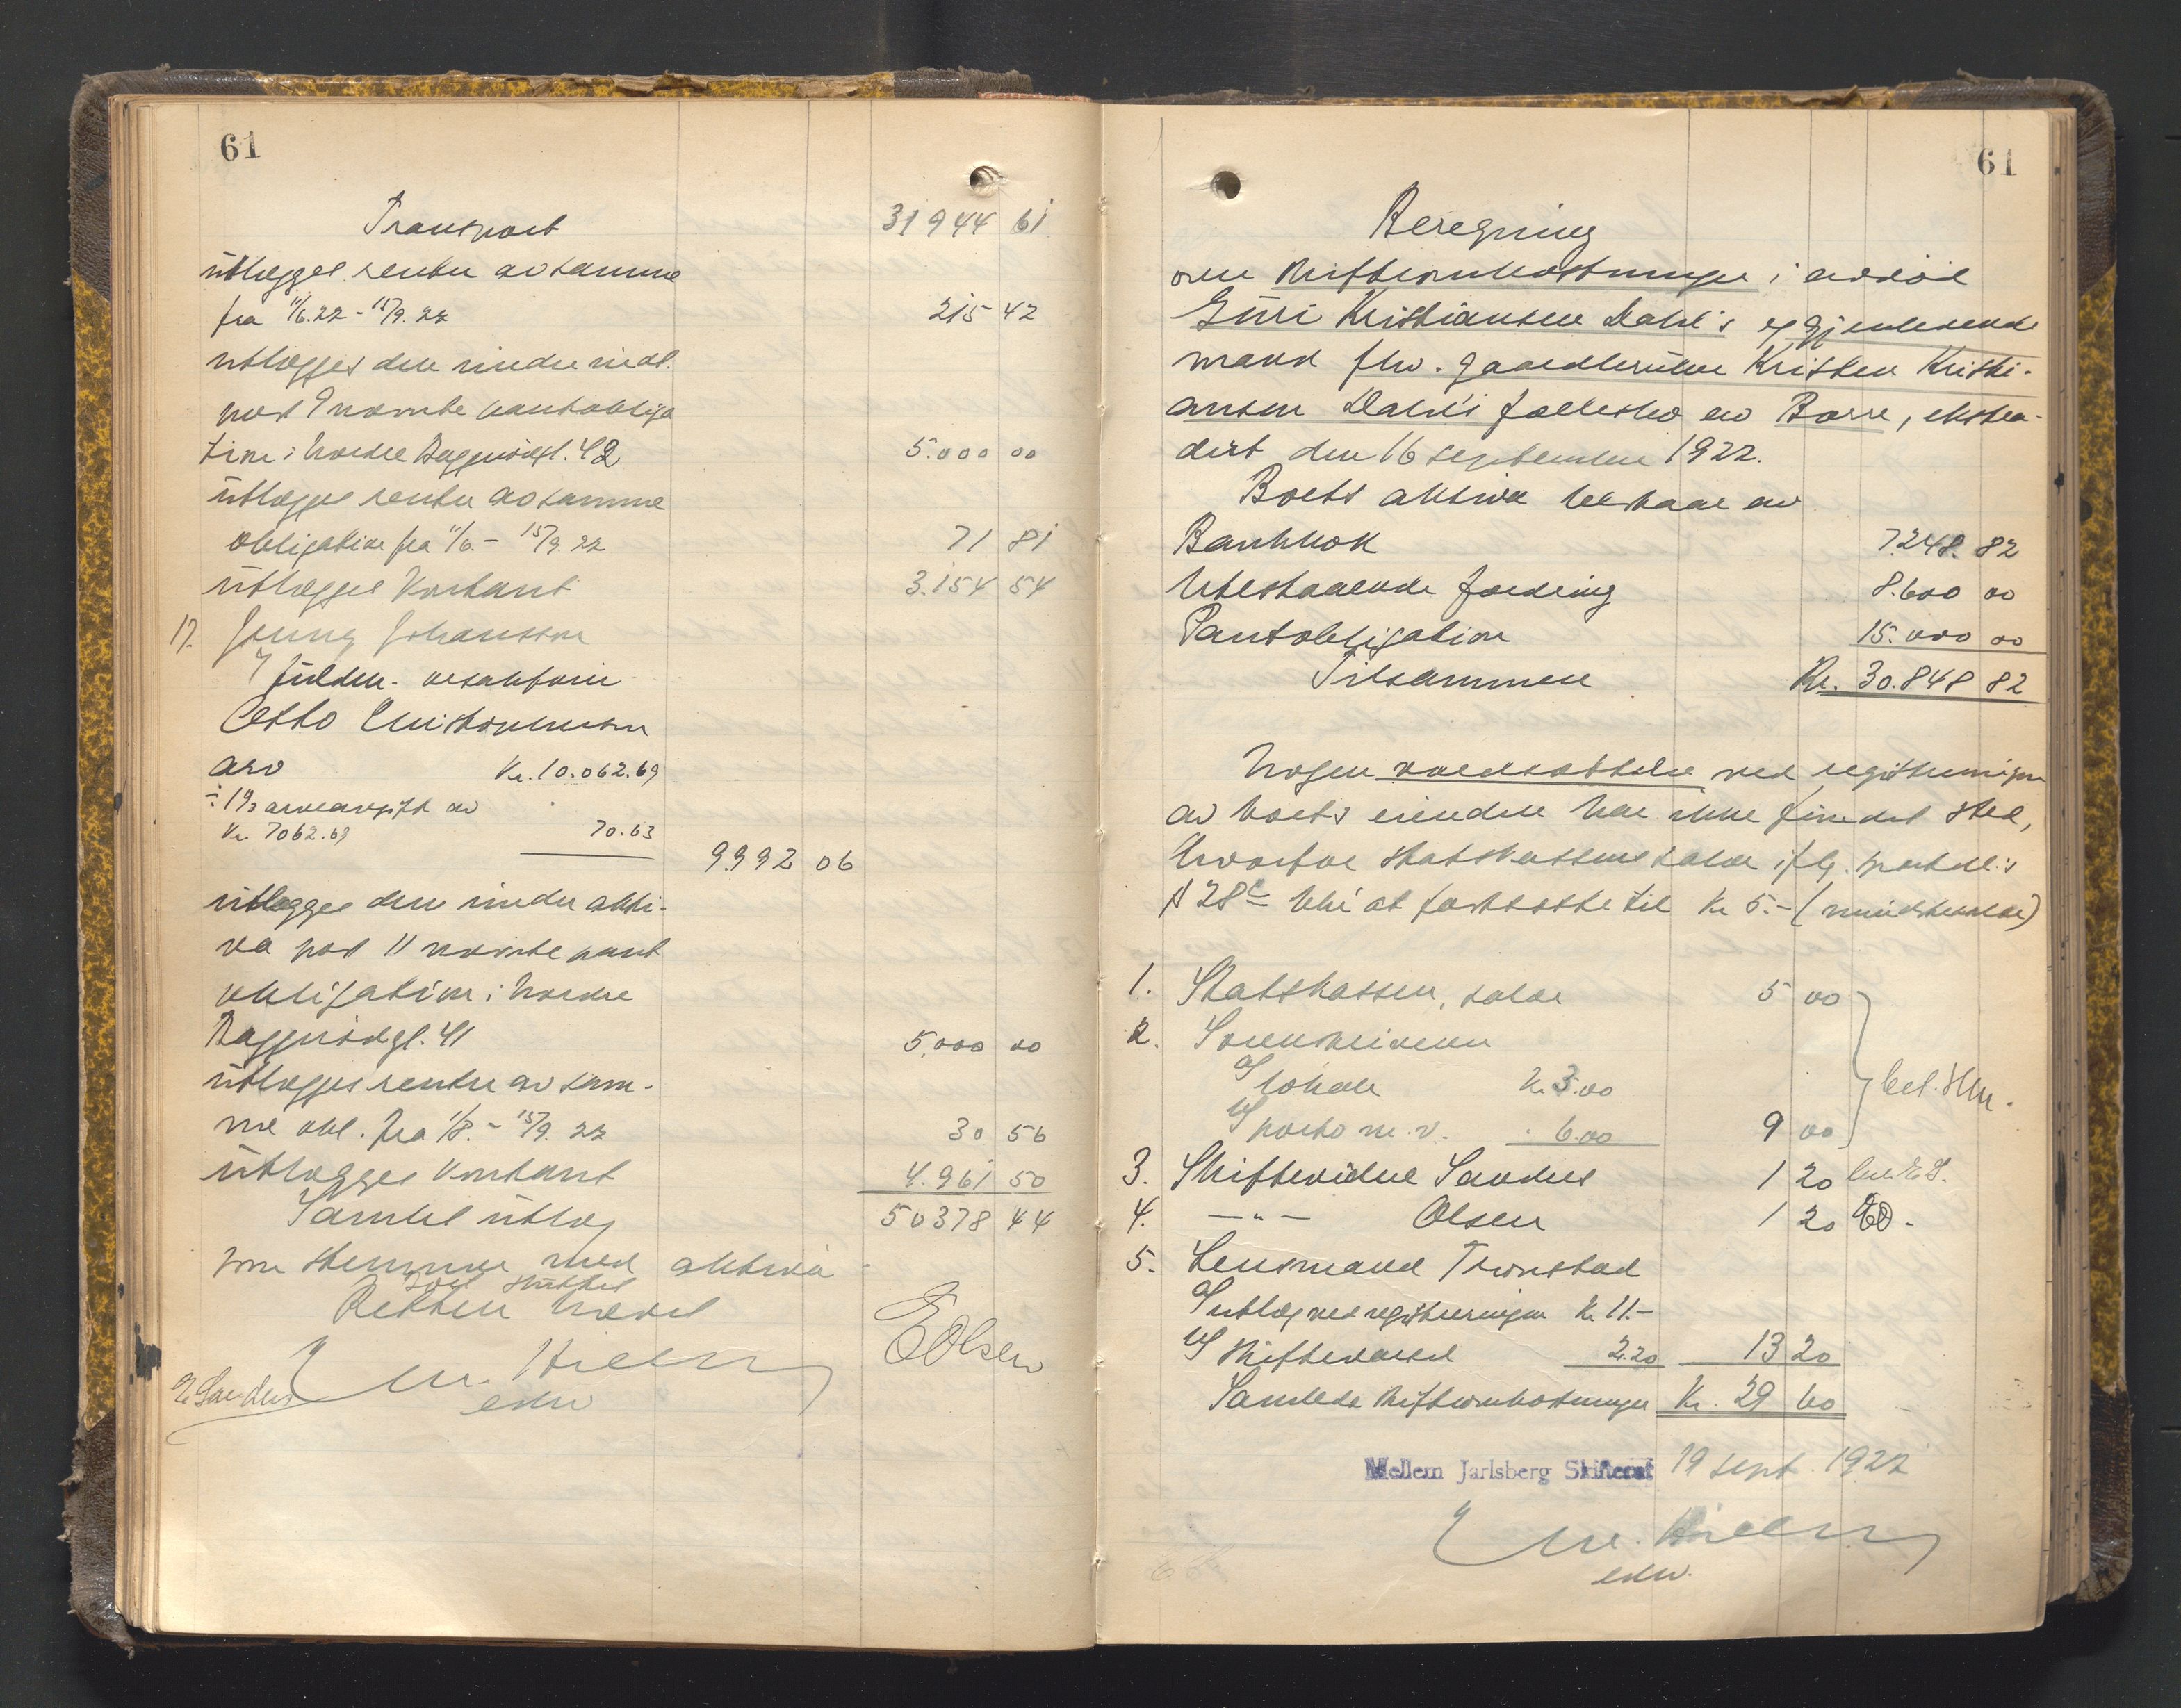 61
Transport 31944 61
utlægges renter av samme
fra 11/6.22 - 15/9.22 215 42
utlægges den under
post 9 nævnte pantobliga
tion i Nordre gl. 42 5.000 00
utlægges renter av samme
obligation fra 11/6. - 15/9.22 71 81
utlægges kontant 3.154 54
17. Jenny Johansson
v/ fuldm.
Otto
arv Kr. 10.062.69
÷ 1% arveavgift av
Kr. 7062.69 70.63
9992 06
utlægges den under akti-
va post 11 nævnte pant
obligation i Nordre
gl. 41 5.000 00
utlægges renter av sam-
me obl. fra 1/8. - 15/9.22 30 56
utlægges kontant 4.961 50
Samlet utlæg 50378 44
som stemmer med aktiva
Boet sluttet
Retten hævet
EOlsen
E. Sandnes
eskv
61
Beregning
over skifteomkostninger i avdøde
Guri Kristiansen Dahl's og gjenlevende
mand fhv. gaardbruker Kristen Kristi-
ansen Dahl's fællesbo av Borre, ekstra-
dert den 16 september 1922.
Boets aktiva bestaar av
Bankbok 7.248. 82
Utestaaende fordring 8.600 00
Pantobligation 15.000 00
Tilsammen Kr. 30.848 82
Nogen værdsættelse ved registreringen
av boets eiendele har ikke fundet sted,
hvorfor statskassens salær iflg. sportell.'s
§ 28c blir at fastsætte til Kr 5.- (mindstesalær)
1. Statskassen, salær 5 00
2. Sorenskriveren
a/ lokale Kr. 3.00
b/ porto m.v. 6.00 9 00
3. Skiftevidne Sandnes 1 20
4. —"— Olsen 1 20 EO.
5. Lensmand Tronstad
a/ utlæg ved registreringen Kr. 11.-
b/ skiftevarsel 2.20 13 20
Samlede skifteomkostninger Kr. 29 60
Mellem Jarlsberg Skifteret 19 sept. 1922
eskv.